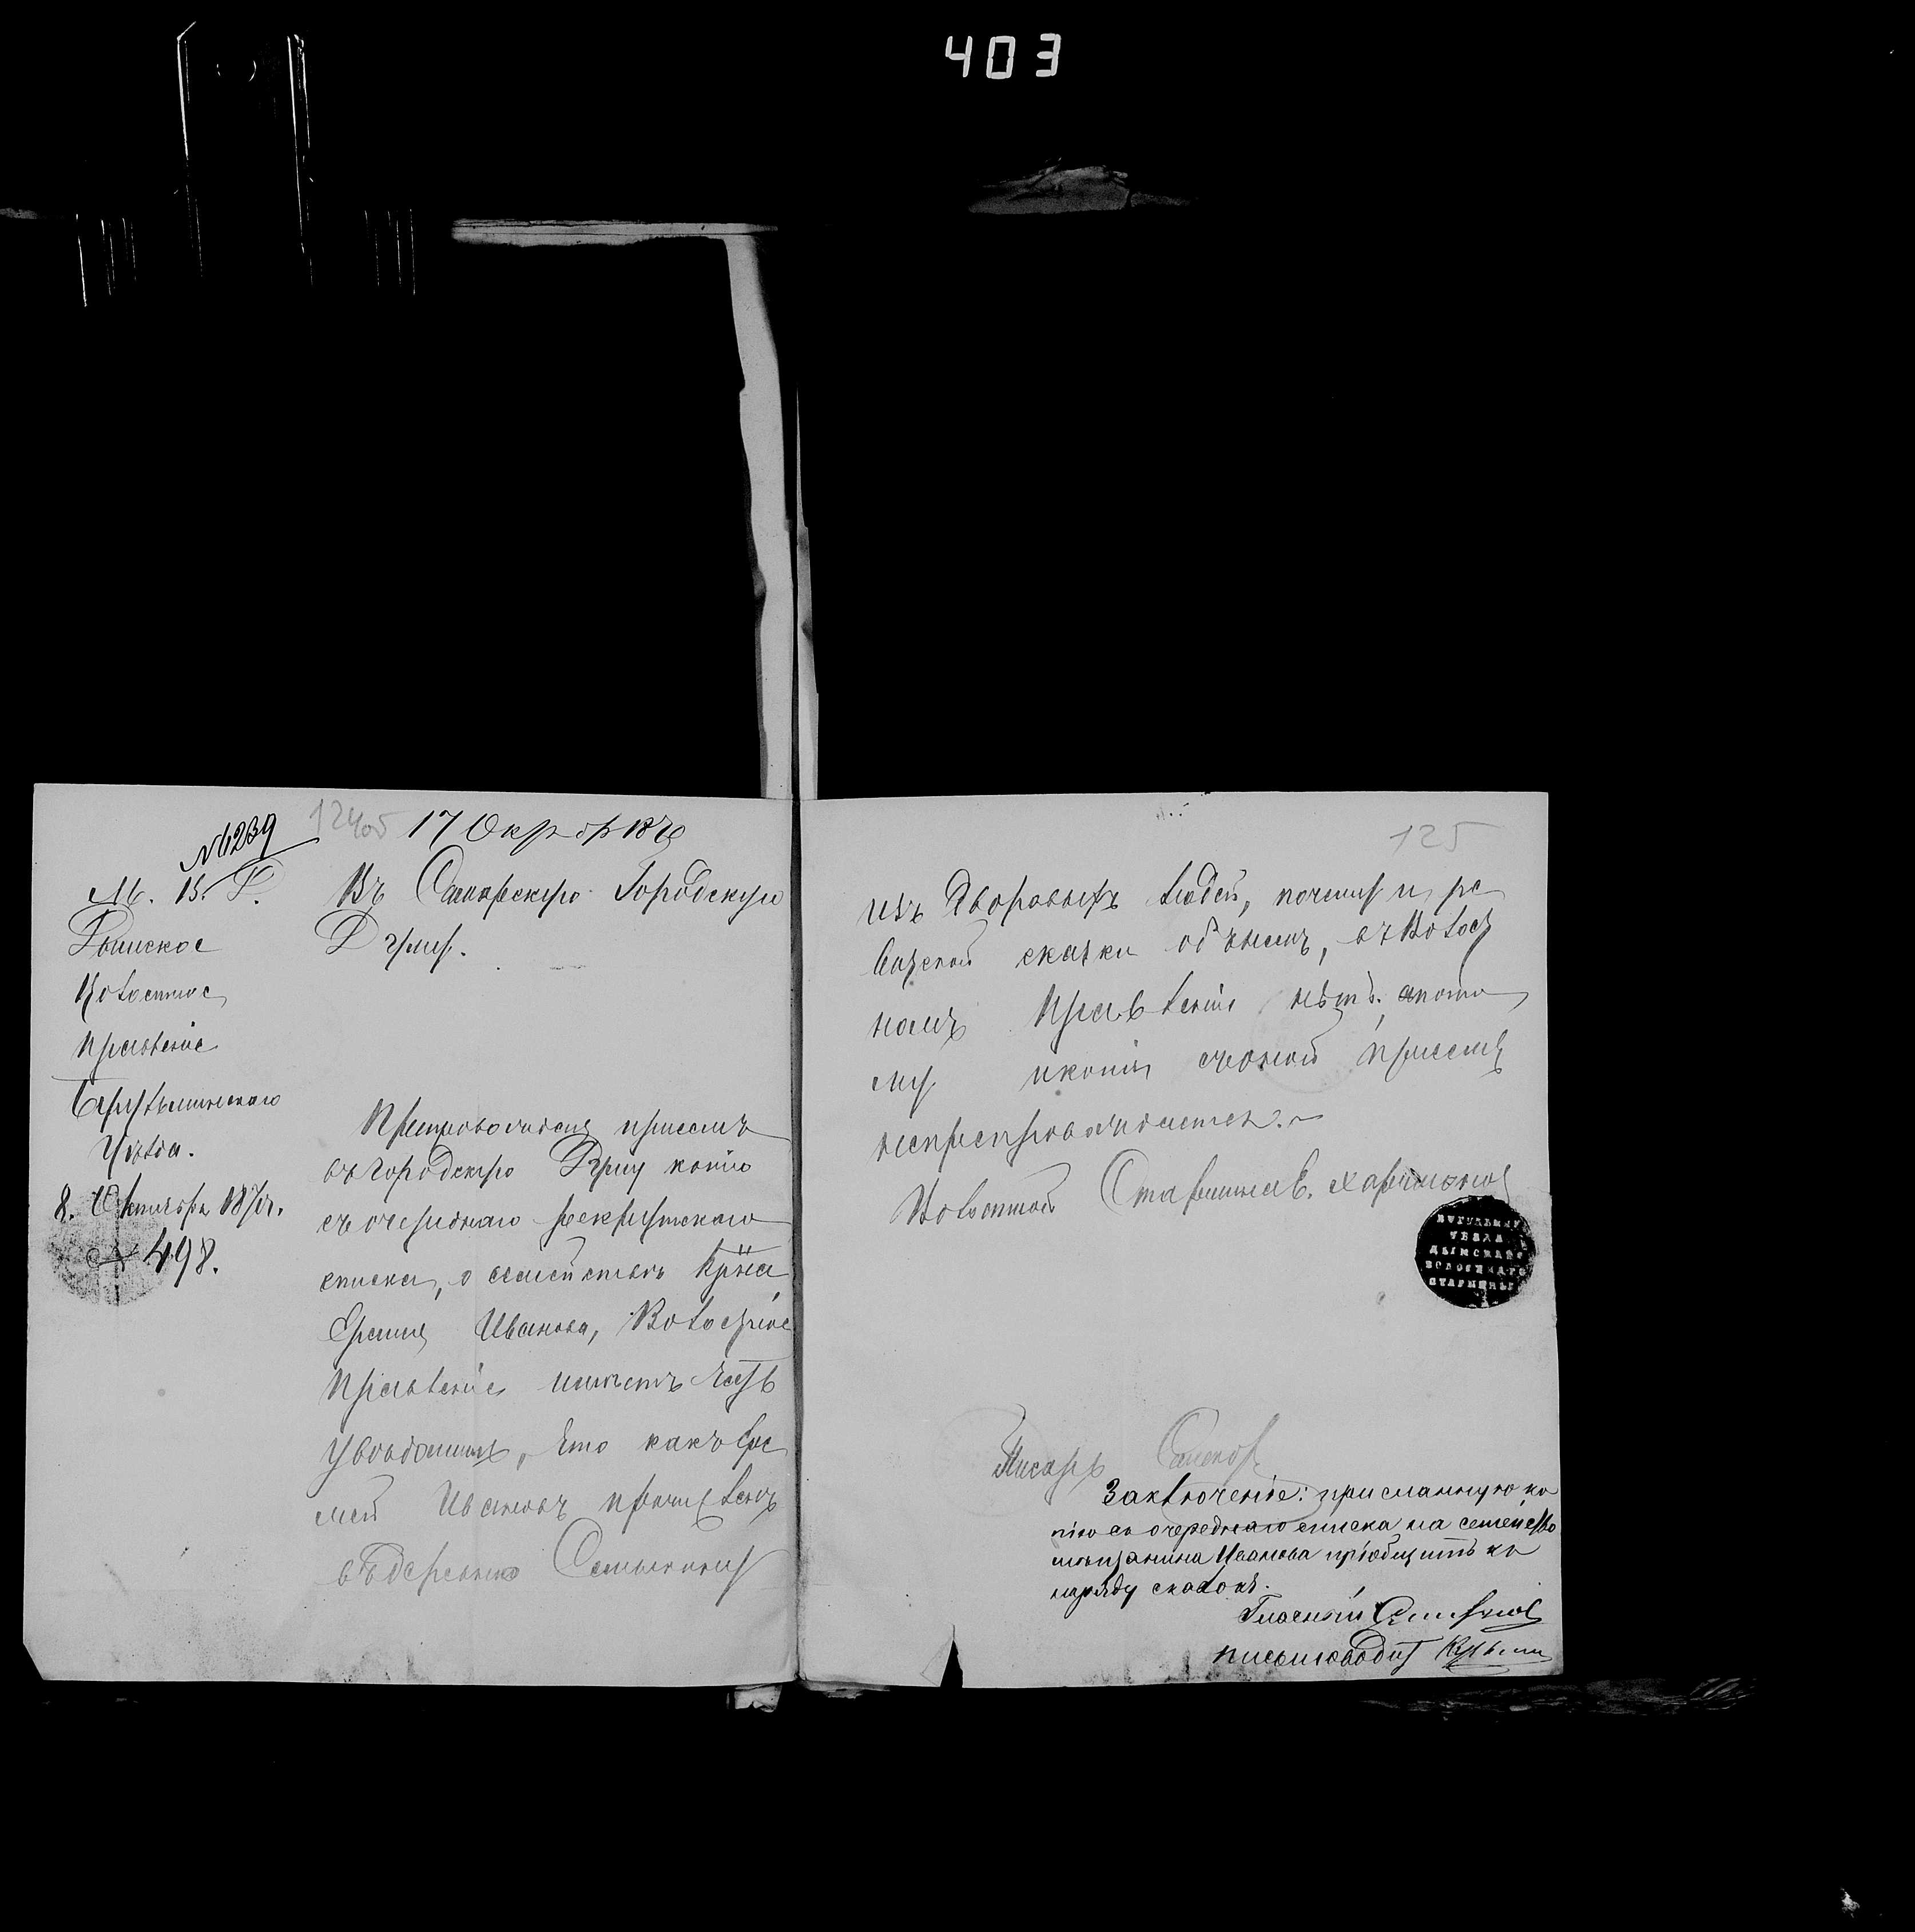 403
№ 6239
12405 17 Окт
М. В. Д.
Дымское
Волостное
Правленіе
Бугульминскаго
Уѣзда.
8. Октября 187
№ 498.
Въ Самарскую Городскую
Думу.
Препровождая присемъ
въ Городскую Думу копію
съ очереднаго рекрутскаго
списка, о семействѣ
Еремѣя Иванова, Волостное
Правленіе имѣетъ честь
увѣдомить, что какъ Ере
мей Ивановъ причисленъ
въ деревню
125
изъ Дворовыхъ людей, почему и ре
визской сказки объ немъ, въ Волост
номъ Правленіи нѣтъ, а пото
му и копіи съ оной присемъ
непрепровождается.
Волостной Старшина Е. Харитонов
БУГУЛЬМИН
УѢЗДА
ДЫМСКАГО
ВОЛОСТНАГО
СТАРШИНЫ
Писарь
Заключеніе: присланную ко
пію съ очереднаго списка на семейство
мѣщанина Иванова пріобщить къ
наряду сказокъ.
Гласный
письмоводит